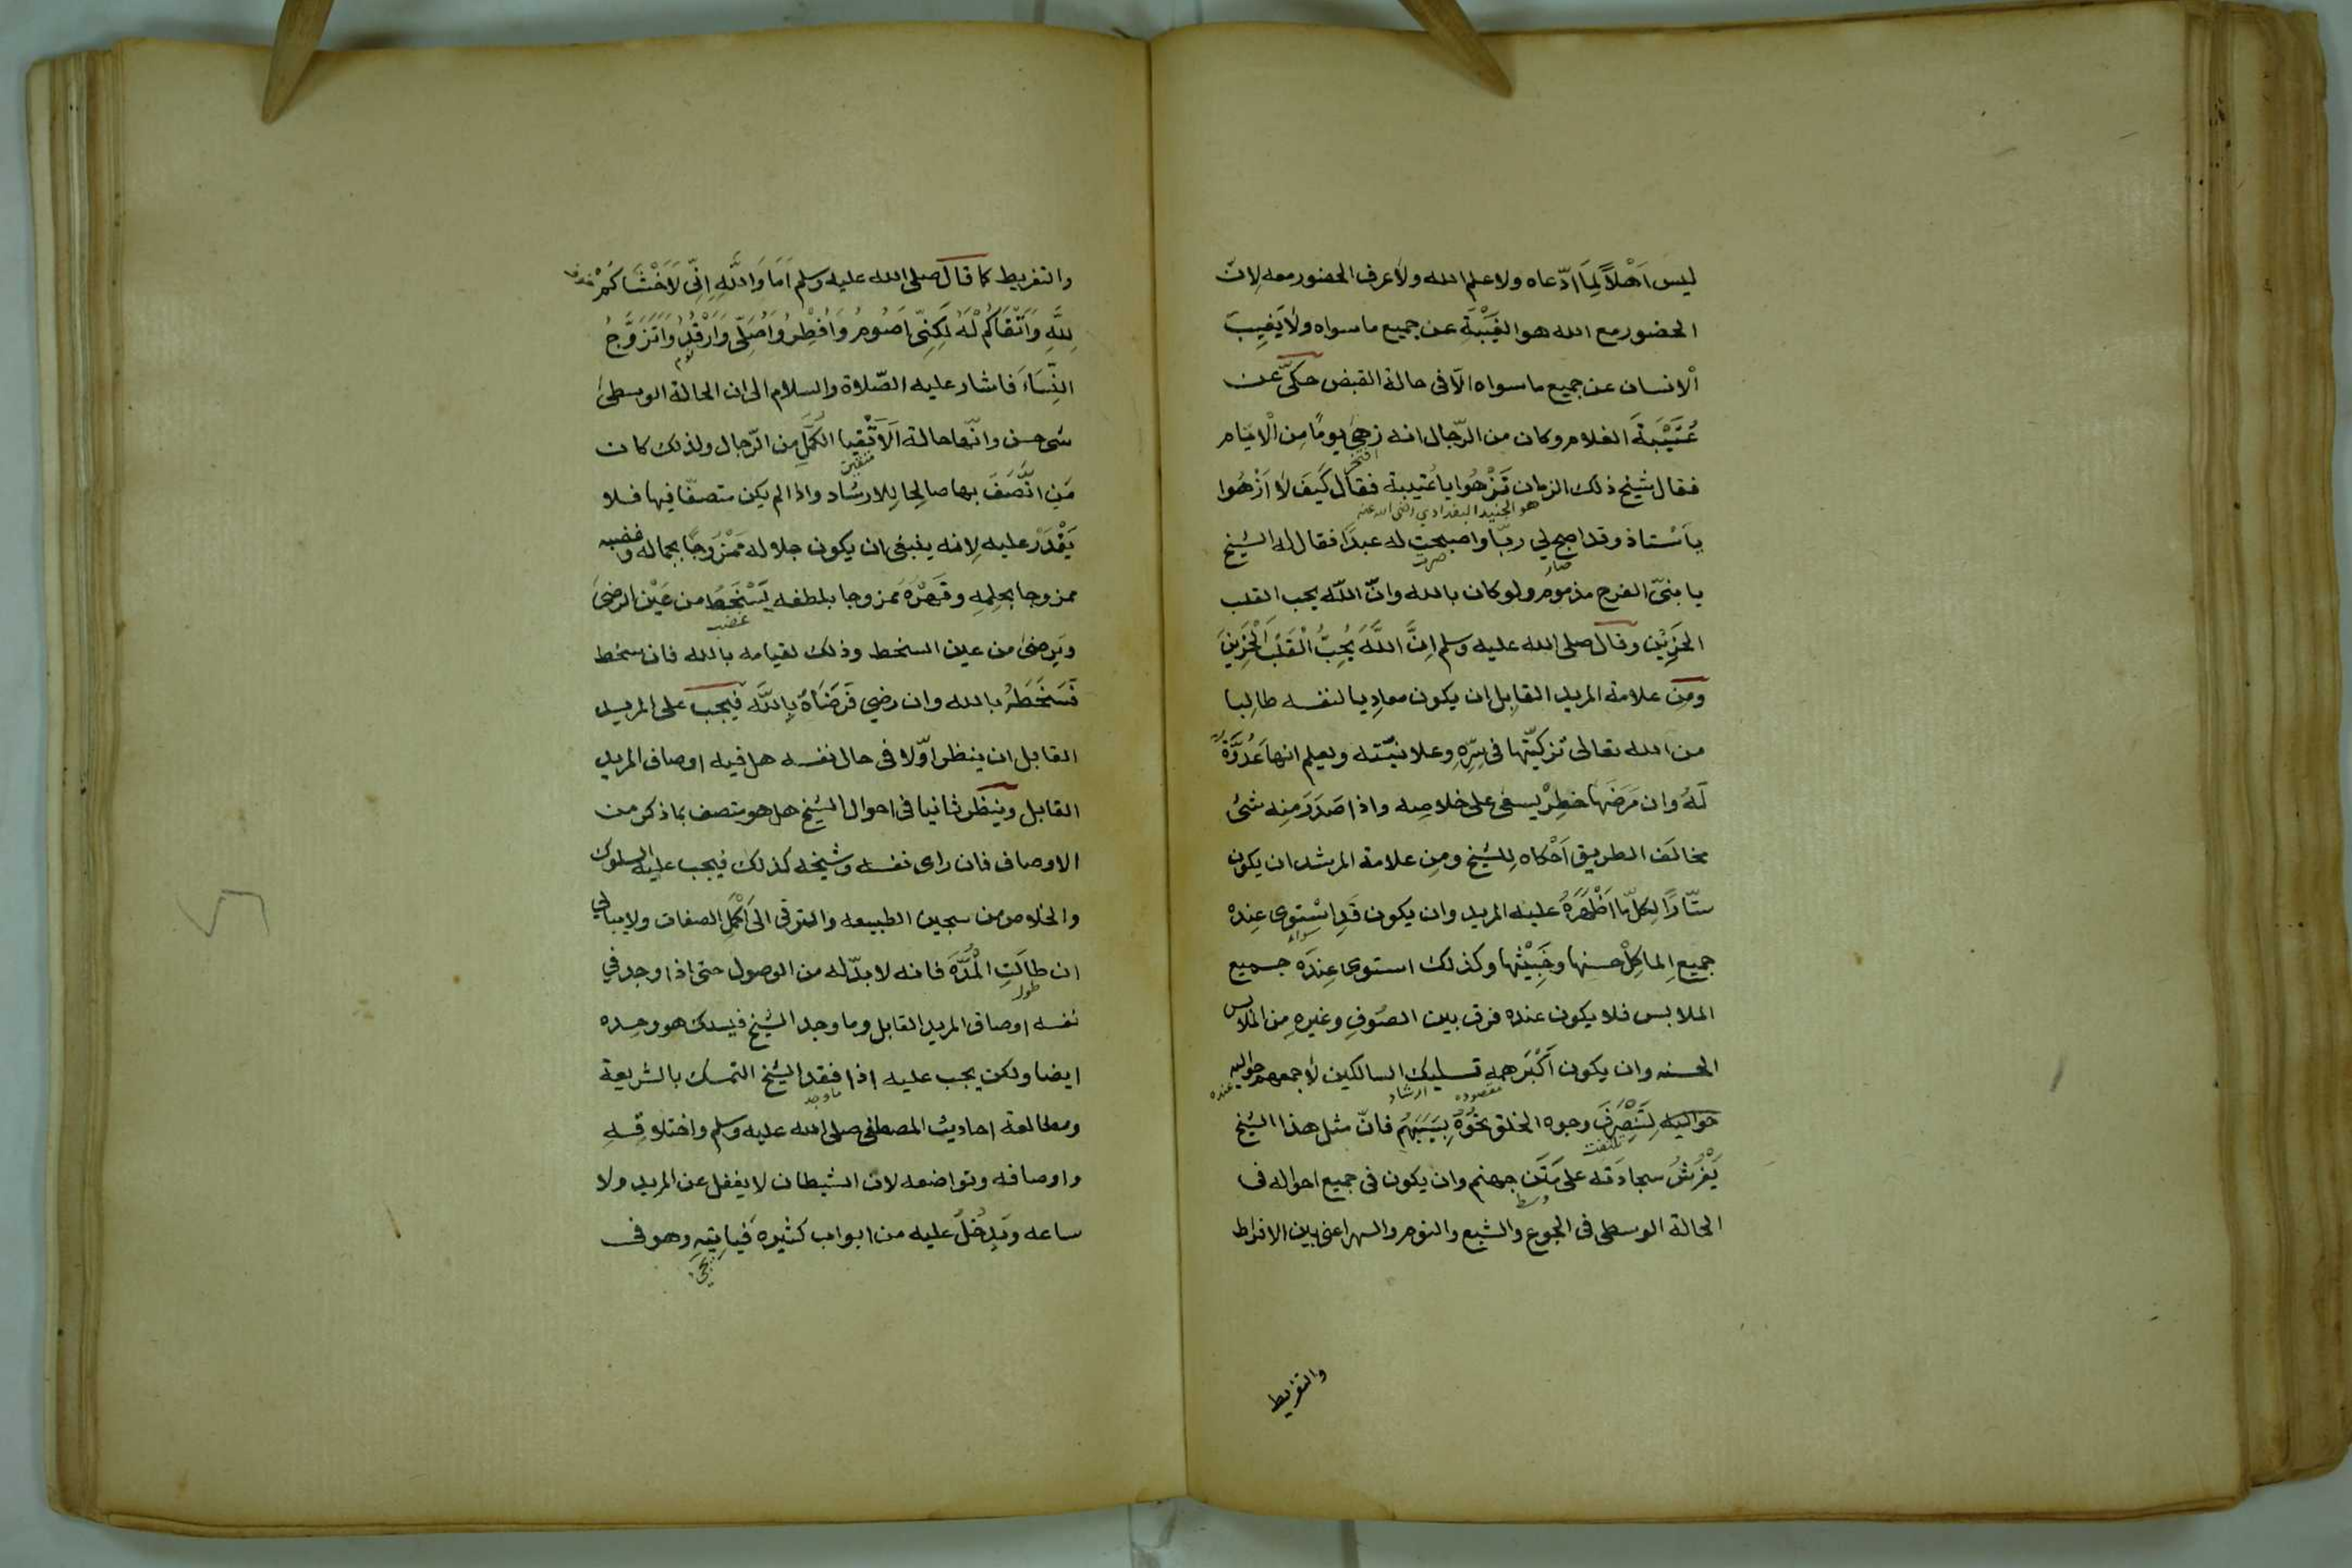 ليسَ اَهْلاً لِمَا ادّعاه ولا علم الله ولا عرف الحضور معه لِانّ
الحضور مع الله هو الغَيْبَة عن جميع ما سواه ولا يَغِيبُ
الْانسان عن جميع ما سواه الّا فى حالة القبض حكىّ عن
عُتَيْبَةَ الغلام وكان من الرّجال انه زهى يومًا مِن الْايّام
افتخر
فقال شيخ ذلك الزمان تَزْهُوا يا عُتيبة فقال كَيفَ لَا اَزْهُوا
هو الجنيد البغدادي رضى الله عنه
يا اَسْتاذ وقد اصبح لي ربّا واصبحت له عبدًا فقال له الشيخ
صار صرت
يا بنىّ الفرح مذموم ولو كان بالله وانّ الله يحب القلب
الحَزِيْن وقال صلى الله عليه وسلم اِنَّ اللَّهَ يُحِبُّ الْقَلْبَ الْحَزِينَ
ومِن علامة المريد القابِل ان يكون معادِيا لنفسه طالِبا
من الله تعالى تزكيّتها فى سِرِّهِ وعلانيّته ويعلم انها عَدُوَّةٌ
لَهُ وان مَرَضَهَا خَطِرٌ يسعى على خلاصِه واذا صَدَرَ مِنه شىُ
مخالف الطريق اَحْكاه لِلشيخ ومِن علامة المرشد ان يكون
ستّارًا لِكلّ ما اَظْهَرَهُ عليه المريد وان يكون قَدِ اسْتوى عِنده
سواء
جميع الماكِلْ حسنها وخَبِيْثها وكذلك استوى عِندَه جميع
الملابس فلا يكون عنده فرق بين الصُوفِ وغيرهِ مِن الملابس
الحسنه وان يكون اَكْبَر همهِ تسليك السالكين لا جمعهم حواليه
مقصوده ارشاد عنده
حواليه لِتَنْصَرِفَ وجوه الخلق نحْوَهُ بِسَبَبِهُم فانّ مثل هذا الشيخ
تلتفت
يَفْرُشُ سجادَته على مَتَن جهنم وان يكون فى جميع احواله فى
وسط
الحالة الوسطى فى الجوع والشبع والنوم والسهر اعنى بين الافراط
والتفريط
والتفريط كما قال صلى الله عليه وسلم اَمَا وَاللَّهِ اِنّى لَاَخْشَاكُمْ
لِلَّهِ وَاَتْقَاكُمْ لَهُ لَكِنِّى اَصُومُ وَاُفْطِرُ وَاُصَلّى وَاَرْقُدُ وَاَتَزَوَّجُ
نوم
النِّسَاءَ فاشار عليه الصّلاة والسلام الى ان الحالة الوسطىٰ
شى حسن وانّها حالة اَلْاَتْقِيا الكُمَّلِ مِن الرّجال ولذلك كان
متقين
مَن اتَّصَفَ بها صالِحا لِلارشاد واذا لم يكن متصفًا فيها فلا
يَقْدَرْ عليه لِانه ينبغى ان يكون جلاله مَمْزُوجًا بجماله وغضبه
ممزوجا بحِلمِهِ وقَهْرَهُ مَمزوجا بلطفه يَسْخَطُ من عَيْن الرضىٰ
غضب
ويَرضىٰ من عين السخط وذلك لقيامه بالله فان سخط
فَسَخَطُهُ بالله وان رضي فَرِضَاهُ بِاللّه فيجب على المريد
القابل ان ينظر اوّلا فى حال نفسه هل فيه اوصاف المريد
القابل وينظر ثانيا فى احوال الشيخ هل هو متصف بما ذكر من
الاوصاف فان راى نفسه وشيخه كذلك فيجب عليه السلوك
والخلاص من سجين الطبيعه والترقى الى اَكْمَلِ الصفات ولا يبالي
ان طالَتِ الْمُدَّه فانه لا بدّ له من الوصول حتى اذا وجد في
طول
نفسه اوصاف المريد القابل وما وجد الشيخ فيسلك هو وحِده
ايضا ولكن يجب عليه اذا فقد الشيخ التمسك بالشريعة
ما وجد
ومطالعة احاديث المصطفى صلى الله عليه وسلم واخلاقِهِ
واوصافه وتواضعه لان الشيطان لا يغفل عن المريد ولا
ساعه ويَدخُلُ عليه من ابواب كثيره فَيَاتِيَهِ وهو فى
يجى